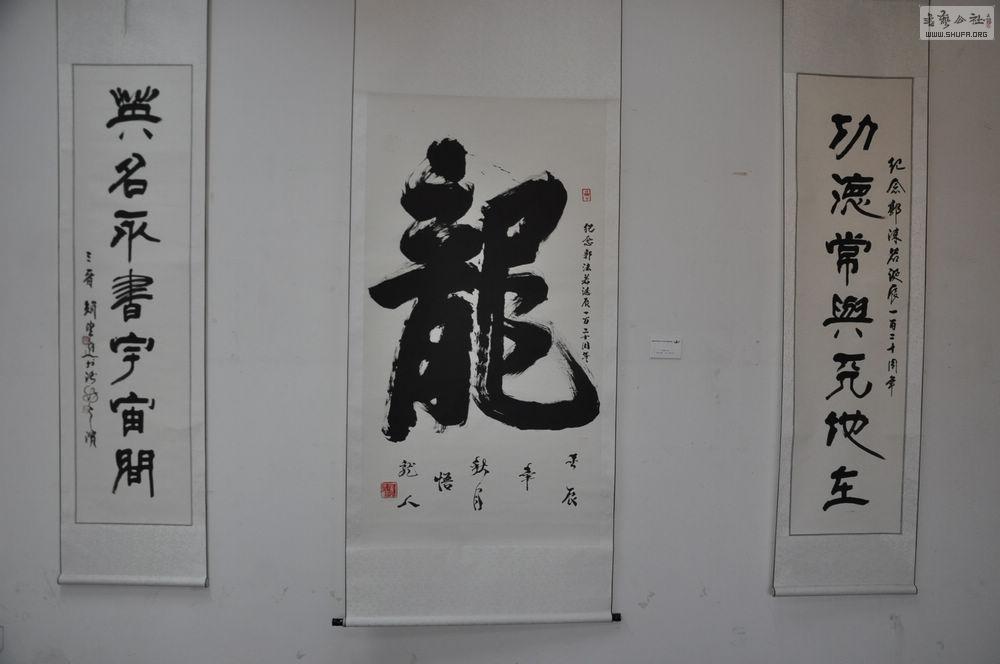 書藝公社
WWW.SHUFA.ORG
功德常與天地在
紀念郭沫若誕辰一百二十周年
龍
紀念郭沫若誕辰一百二十周年
壬辰
年
秋月
悟
龍人
英名永書宇宙間
三晉